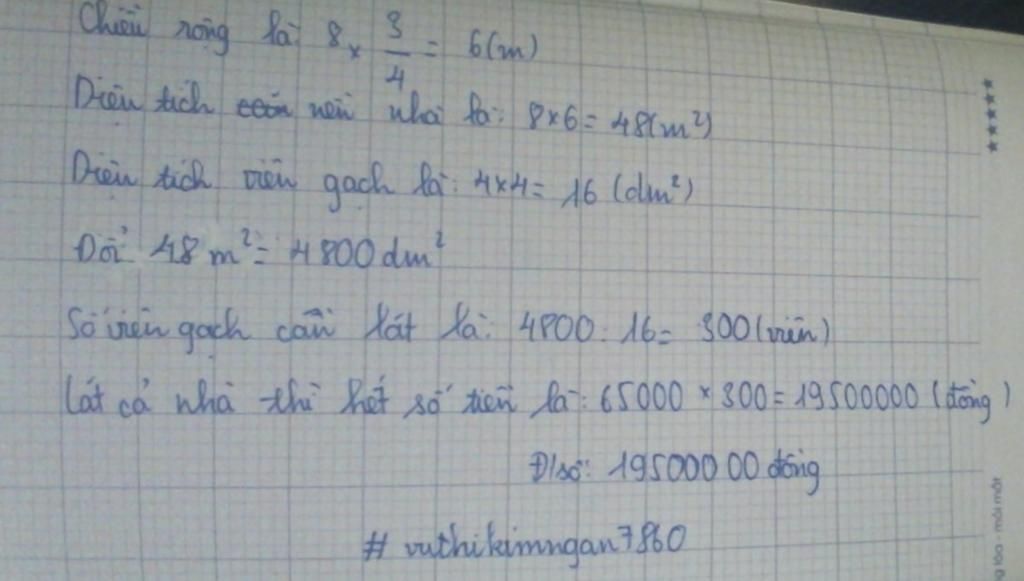 Chiều rộng là: 8 × 3/4 = 6(m)
Diện tích nền nhà là: 8×6= 48(m²)
Diện tích viên gạch là: 4×4= 16 (dm²)
Đổi 48 m²= 4800 dm²
Số viên gạch cần lát là: 4800 : 16= 300(viên)
Lát cả nhà thì hết số tiền là: 65000 × 300= 19500000 (đồng)
Đ/số: 19500000 đồng
# vuthikimngan7860